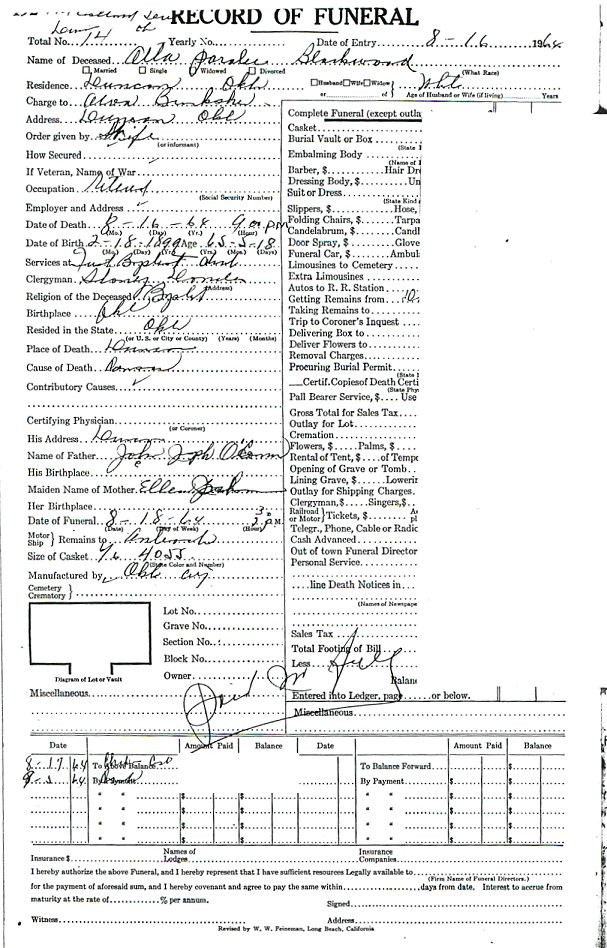 RECORD OF FUNERAL
Total No. 14 Yearly No. Date of Entry 8-16 1964
Name of Deceased Blackwood
Married Single Widowed Divorced (What Race)
Residence Duncan Okla Husband Wife Widow White
or of Age of Husband or Wife (if living) Years
Charge to Alva
Address Duncan Okl
Order given by Wife
(or informant)
How Secured
If Veteran, Name of War
Occupation Retired
(Social Security Number)
Employer and Address
Date of Death 8-16-64 9 00 PM
(Mo.) (Day) (Yr.) (Hour)
Date of Birth 2-18-1899 Age 65-5-18
(Mo.) (Day) (Yr.) Yrs. Mos. (Days)
Services at First Baptist
Clergyman
(Address)
Religion of the Deceased Baptist
Birthplace Okl
Resided in the State Okl
(or U. S. or City or County) (Years) (Months)
Place of Death Duncan
Cause of Death
Contributory Causes
Certifying Physician
(or Coroner)
His Address Duncan
Name of Father John
His Birthplace
Maiden Name of Mother Ellen
Her Birthplace
Date of Funeral 8-18-64 2 P.M.
(Date) (Day of Week) (Hour)
Motor Ship Remains to
Size of Casket 76 4055
(State Color and Number)
Manufactured by Okl City
Cemetery
Crematory
Lot No.
Grave No.
Section No.
Block No.
Owner
Diagram of Lot or Vault
Miscellaneous
Complete Funeral (except outla
Casket
Burial Vault or Box
(State
Embalming Body
(Name of
Barber, $ Hair Dr
Dressing Body, $ Un
Suit or Dress
(State Kind
Slippers, $ Hose,
Folding Chairs, $ Tarpa
Candelabrum, $ Candl
Door Spray, $ Glove
Funeral Car, $ Ambul
Limousines to Cemetery
Extra Limousines
Autos to R. R. Station
Getting Remains from
Taking Remains to
Trip to Coroner's Inquest
Delivering Box to
Deliver Flowers to
Removal Charges
Procuring Burial Permit
(State
Certif. Copies of Death Certi
(State Phy
Pall Bearer Service, $ Use
Gross Total for Sales Tax
Outlay for Lot
Cremation
Flowers, $ Palms, $
Rental of Tent, $ of Temp
Opening of Grave or Tomb
Lining Grave, $ Lowerin
Outlay for Shipping Charges
Clergyman, $ Singers, $
Railroad or Motor Tickets, $
Telegr., Phone, Cable or Radio
Cash Advanced
Out of town Funeral Director
Personal Service
line Death Notices in
(Names of Newspape
Sales Tax
Total Footing of Bill
Less
Balanc
Paid in full
Entered into Ledger, page or below.
Miscellaneous
Date Amount Paid Balance Date Amount Paid Balance
8-17 64 To Above Balance To Balance Forward $
8 64 By Payment By Payment $ $
" " $ $ " " $ $
" " $ $ " " $ $
" " $ $ " " $ $
" " $ $ " " $ $
Insurance $ Names of Lodges Insurance Companies
I hereby authorize the above Funeral, and I hereby represent that I have sufficient resources Legally available to
(Firm Name of Funeral Directors.)
for the payment of aforesaid sum, and I hereby covenant and agree to pay the same within days from date. Interest to accrue from
maturity at the rate of % per annum. Signed
Witness Address
Revised by W. W. Feineman, Long Beach, California